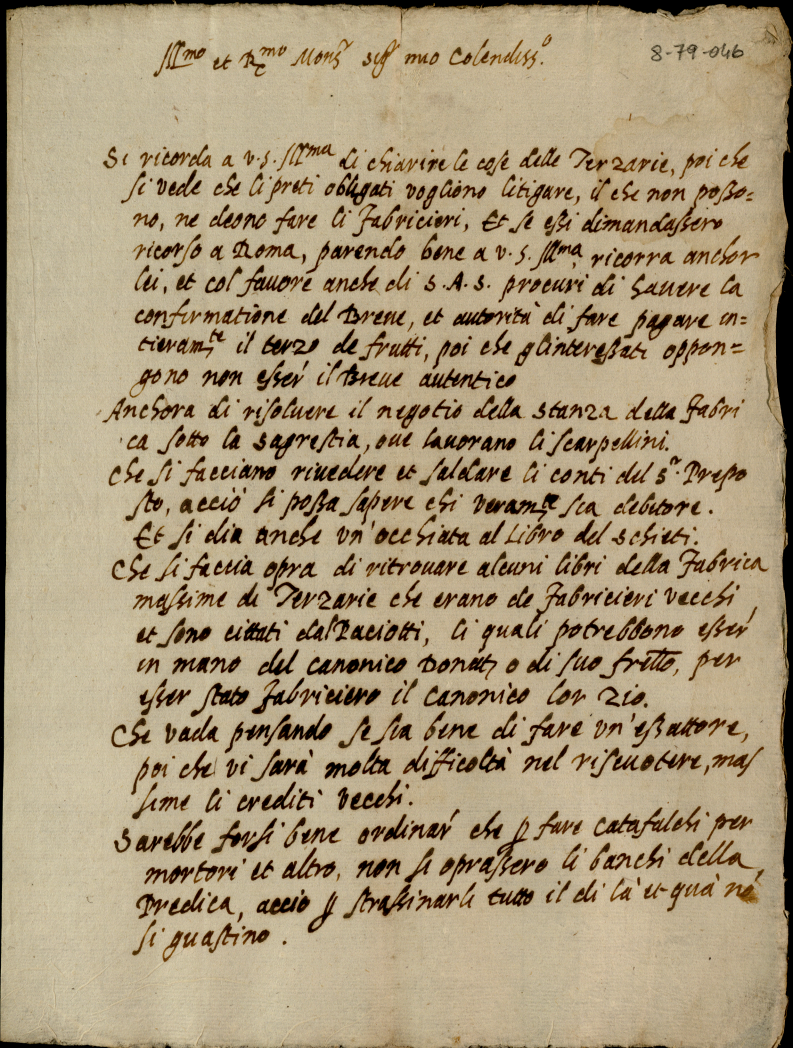 Ill.mo et R.mo Mons.r Sig.r mio Colendiss.o
8-79-046
Si ricorda a V.S. Ill.ma di chiarire le cose delle Terzarie, poi che
si vede che li preti obligati vogliono litigare, il che non posso=
no, ne deono fare li Fabricieri, Et se essi dimandassero
ricorso a Roma, parendo bene a V.S. Ill.ma, ricorra anchor
lei, et col favore anche di S.A.S. procuri di havere la
confirmatione del Breve, et autorità di fare pagare in=
tieram.te il terzo de frutti, poi che gl'interessati oppon=
gono non esser il Breve autentico
Anchora di risolvere il negotio della stanza della Fabri
ca sotto la sagrestia, ove lavorano li scarpellini.
Che si facciano rivedere et saldare li conti del S.r Prepo
sto, acciò si possa sapere chi veram.te sia debitore.
Et si dia anche un'occhiata al Libro del Schieti.
Che si faccia opra di ritrovare alcuni libri della Fabrica
massime di Terzarie che erano de Fabricieri vecchi,
et sono cittati dal Paciotti, li quali potrebbono esser
in mano del canonico Donati o di suo fr̃ello, per
esser stato Fabriciero il canonico lor zio.
Che vada pensando se sia bene di fare un'essattore,
poi che vi sarà molta difficoltà nel riscuotere, mas
sime li crediti vecchi.
Sarebbe forsi bene ordinar che p fare catafalchi per
mortori et altro, non si oprassero li banchi della
Predica, acciò p strassinarli tutto il di là et quà nõ
si guastino.